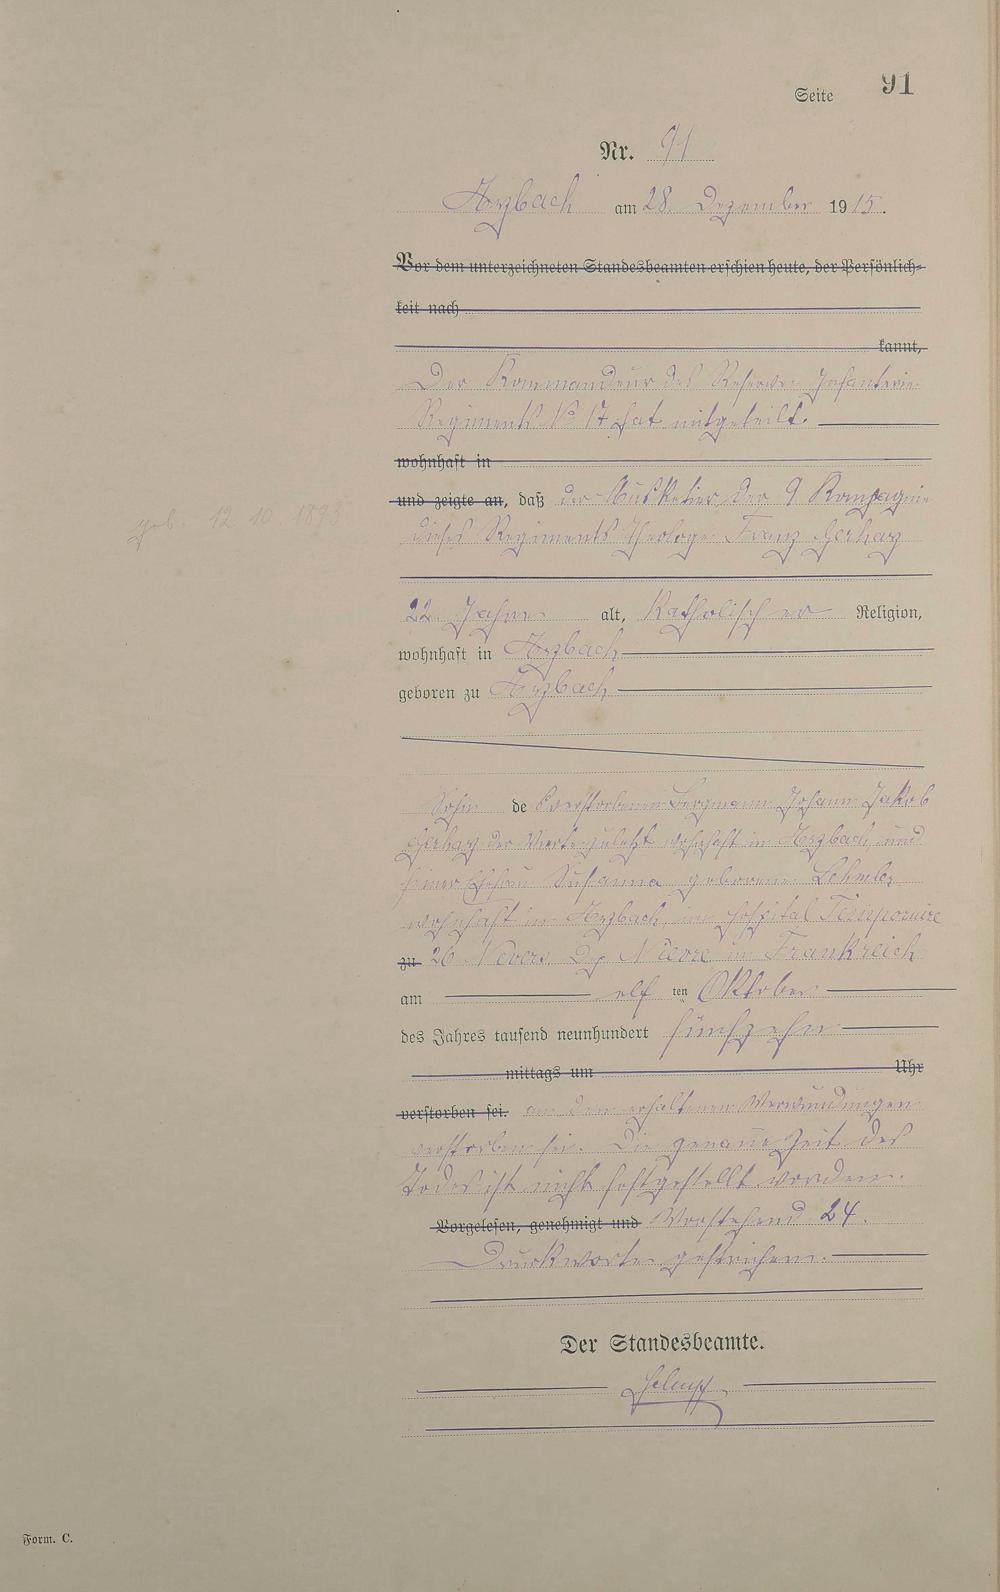 Seite 91
Nr. 91
Arzbach am 28. Dezember 1915.
Vor dem unterzeichneten Standesbeamten erschien heute, der Persönlich-
keit nach
kannt,
Der Kommandeur des Reserve-Infanterie-
Regiments No 17 hat mitgeteilt.
wohnhaft in
und zeigte an, daß der Musketier der 9. Kompagnie
geb. 12 10. 1893
dieses Regiments Theologe Franz Gerharz
22 Jahre alt, Katholischer Religion,
wohnhaft in Arzbach
geboren zu Arzbach
Sohn des verstorbenen Bergmann Johann Jakob
Gerharz der Vierte zuletzt wohnhaft in Arzbach und
seiner Ehefrau Susanna geborene
wohnhaft in Arzbach, im Hospital Temporaire
zu 26 Nevers, Dep Nievre in Frankreich
am elf ten Oktober
des Jahres tausend neunhundert fünfzehn
mittags um Uhr
verstorben sei. an den erhaltenen Verwundungen
verstorben sei. Die genaue Zeit des
Todes ist nicht festgestellt worden.
Vorgelesen, genehmigt und Vorstehend 24.
Druckworte gestrichen.
Der Standesbeamte.
Form. C.